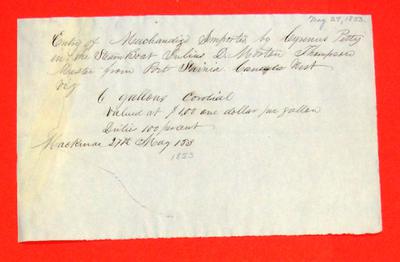 May 27, 1853.
Entry of Merchandize Imported by Cyrenus Petty
in the Steamboat Julius D. Morton Thompson
Master from Port Sarnia Canada West
Viz
6 gallons Cordial
Valued at $1,00 one dollar per gallon
Duties 100 percent
Mackinac 27th May 1853
1853